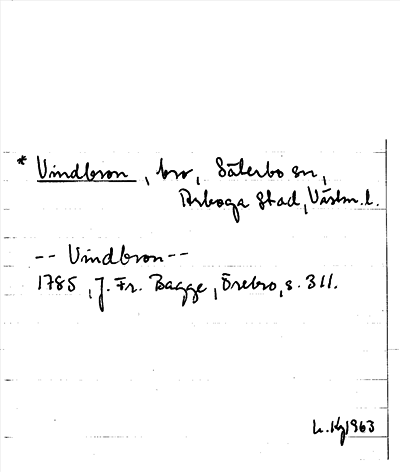 * Vindbron, bro, Säterbo sn,
Arboga stad, Västm. l.
-- Vindbron --
1785, J. Fr. Bagge, Örebro, s. 311.
1963